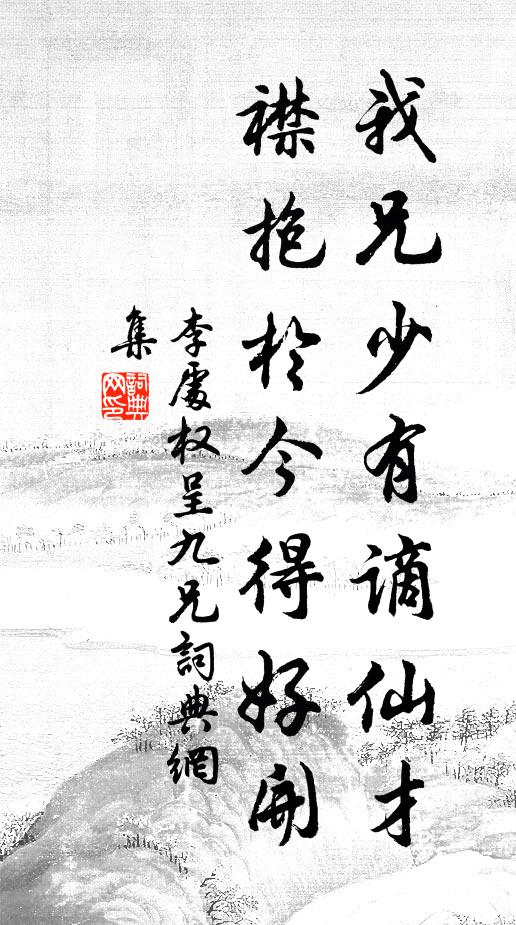 我兄少有謫仙才
襟抱於今得好開
李處权呈九兄詞典網
集
詞典
网印